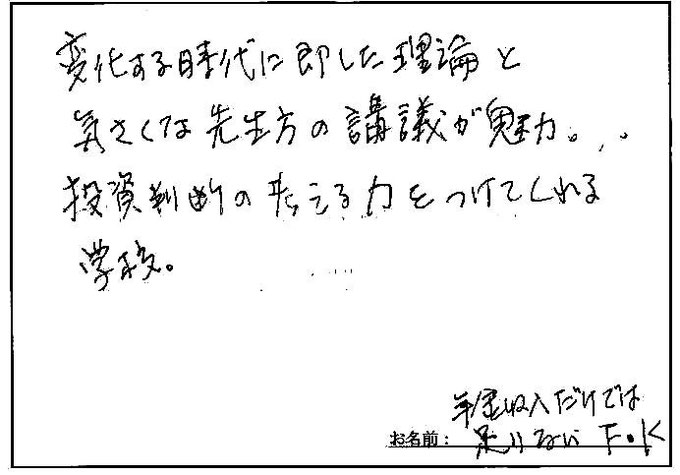 変化する時代に即した理論と
気さくな先生方の講義が魅力。
投資判断の考える力をつけてくれる
学校。
年金収入だけでは
お名前: 足りない F・K